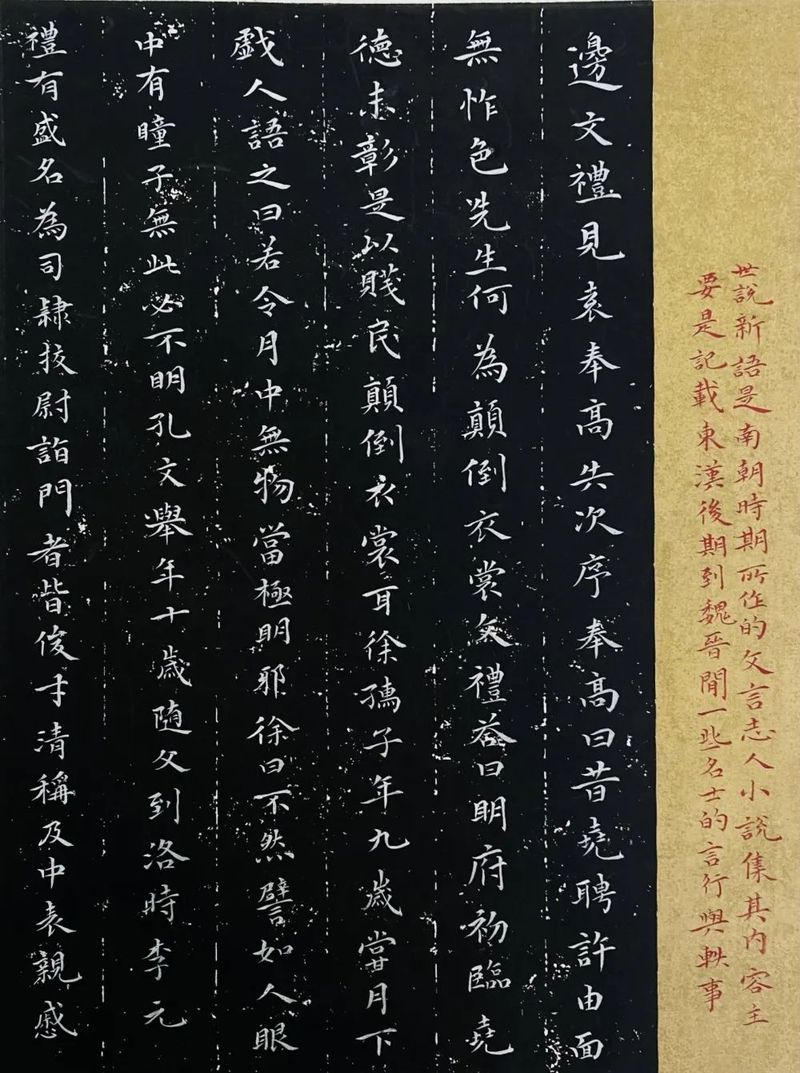 世說新語是南朝時期所作的文言志人小說集其内容主
要是記載東漢後期到魏晉間一些名士的言行與軼事
邊文禮見袁奉高失次序奉高曰昔堯聘許由面
無怍色先生何為顛倒衣裳文禮答曰明府初臨堯
德未彰是以賤民顛倒衣裳耳徐孺子年九歲嘗月下
戲人語之曰若令月中無物當極明邪徐曰不然譬如人眼
中有瞳子無此必不明孔文舉年十歲随父到洛時李元
禮有盛名為司隸校尉詣門者皆俊才清稱及中表親戚